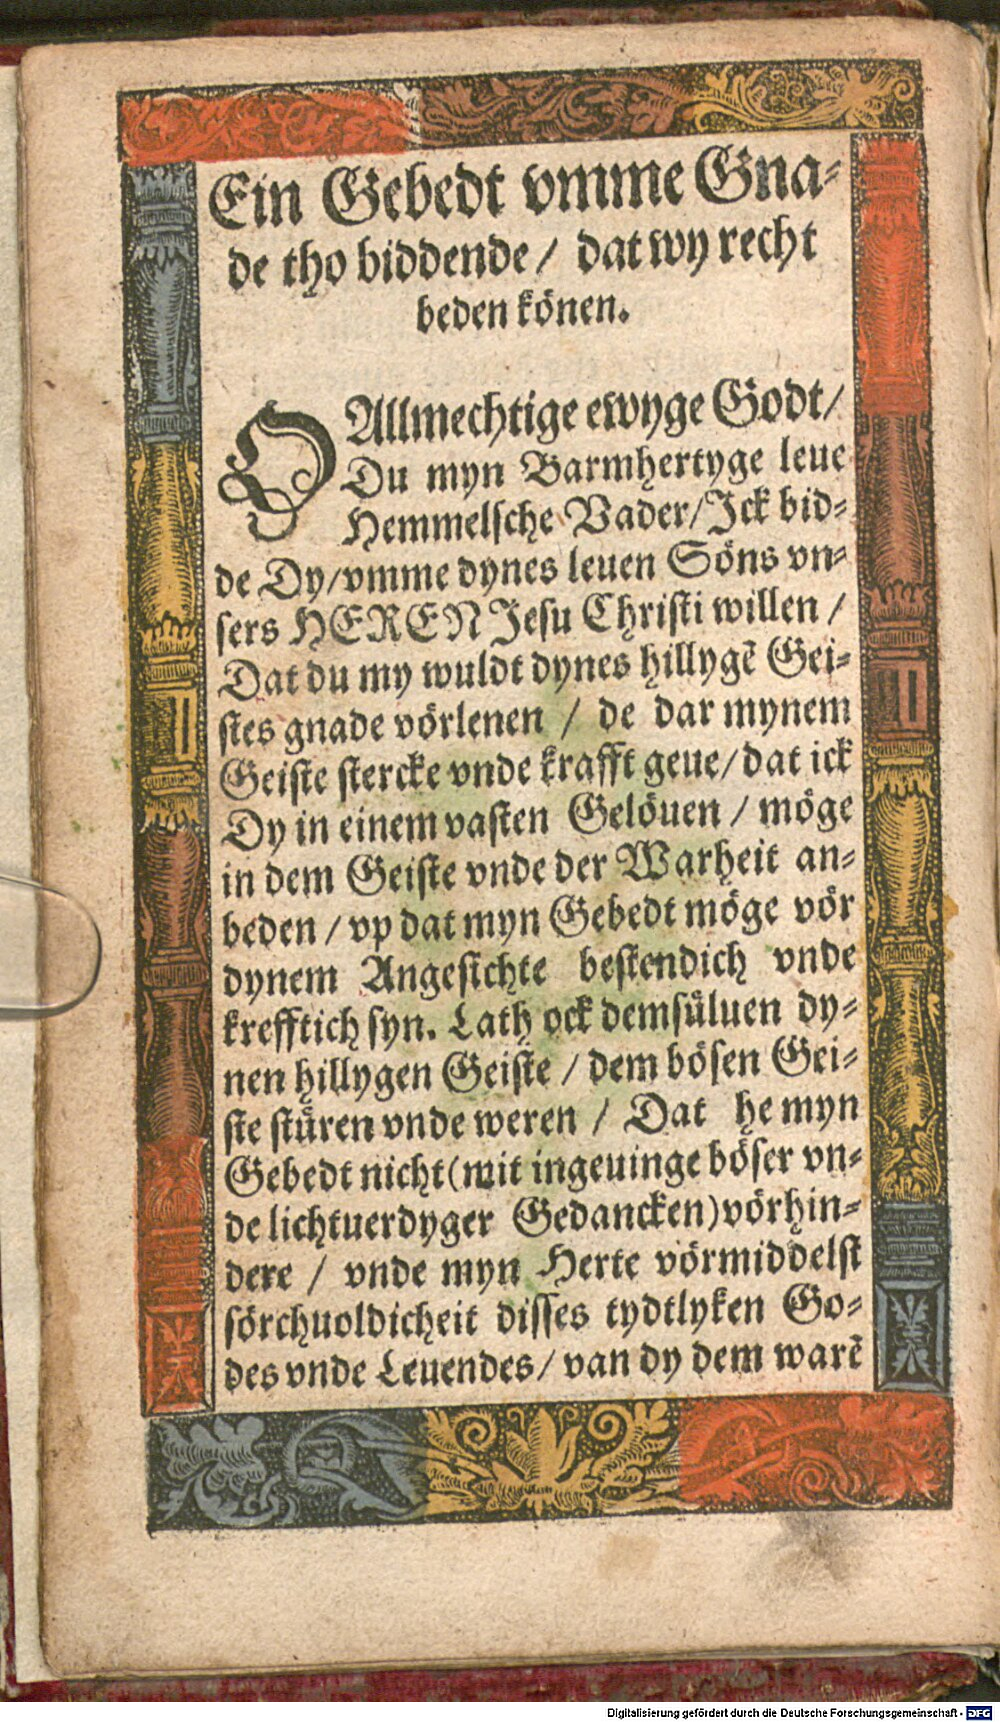 Ein Gebedt vmme Gna-
de tho biddende / dat wy recht
beden könen.
O Allmechtige ewyge Godt /
Du myn Barmhertyge leue
Hemmelsche Vader / Ick bid-
de Dy / vmme dynes leuen Söns vn-
sers HEREN Jesu Christi willen /
Dat du my wuldt dynes hillygē Gei-
stes gnade vörlenen / de dar mynem
Geiste stercke vnde krafft geue / dat ick
Dy in einem vasten Gelöuen / möge
in dem Geiste vnde der Warheit an-
beden / vp dat myn Gebedt möge vör
dynem Angesichte bestendich vnde
krefftich syn. Lath ock demsüluen dy-
nen hillygen Geiste / dem bösen Gei-
ste stüren vnde weren / Dat he myn
Gebedt nicht (mit ingeuinge böser vn-
de lichtuerdyger Gedancken) vörhin-
dere / vnde myn Herte vörmiddelst
sörchuoldicheit disses tydtlyken Go-
des vnde Leuendes / van dy dem warē
Digitalisierung gefördert durch die Deutsche Forschungsgemeinschaft - DFG